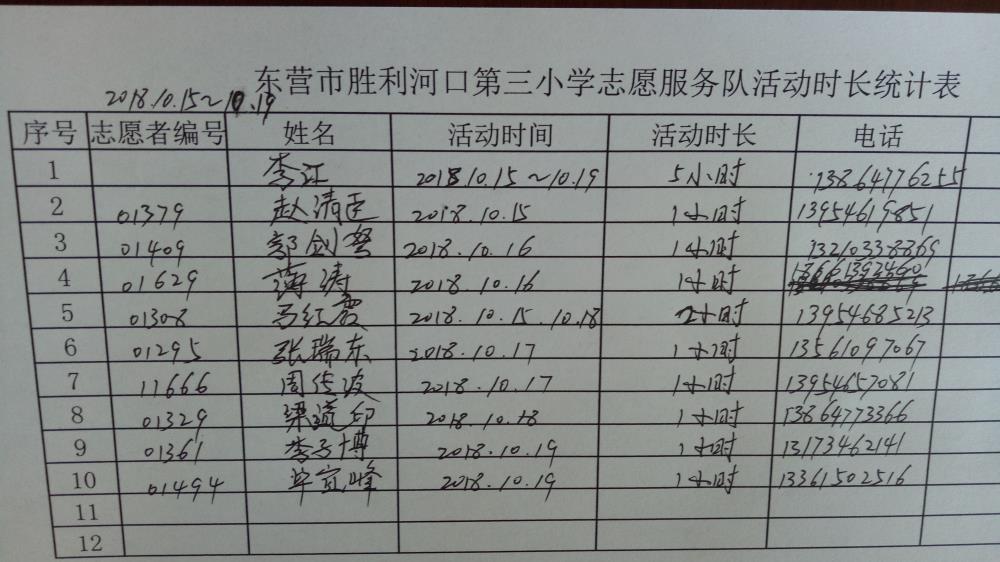 东营市胜利河口第三小学志愿服务队活动时长统计表
2018.10.15~10.19
序号 志愿者编号 姓名 活动时间 活动时长 电话
1 李江 2018.10.15~10.19 5小时 13864776255
2 01379 赵清 2018.10.15 1小时 13954619851
3 01409 郭剑 2018.10.16 1小时 13210338869
4 01629 蒋涛 2018.10.16 1小时
5 01308 马红霞 2018.10.15.10.18 2小时 13954685213
6 01295 张瑞东 2018.10.17 1小时 13561097067
7 11666 周传波 2018.10.17 1小时 13954657081
8 01329 梁道印 2018.10.18 1小时 13864773366
9 01361 李子博 2018.10.19 1小时 13173462141
10 01494 毕宜峰 2018.10.19 1小时 13361502516
11
12